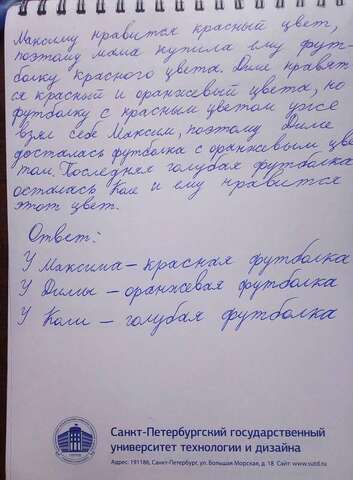 Максиму нравится красный цвет,
поэтому мама купила ему фут-
болку красного цвета. Диме нравят-
ся красный и оранжевый цвета, но
футболку с красным цветом уже
взял себе Максим, поэтому Диме
досталась футболка с оранжевым цве
том. Последняя голубая футболка
осталась Коле и ему нравится
этот цвет.
Ответ:
У Максима – красная футболка
У Димы – оранжевая футболка
У Коли – голубая футболка
Санкт-Петербургский государственный
университет технологии и дизайна
Адрес: 191186, Санкт-Петербург, ул. Большая Морская, д. 18 Сайт: www.sutd.ru